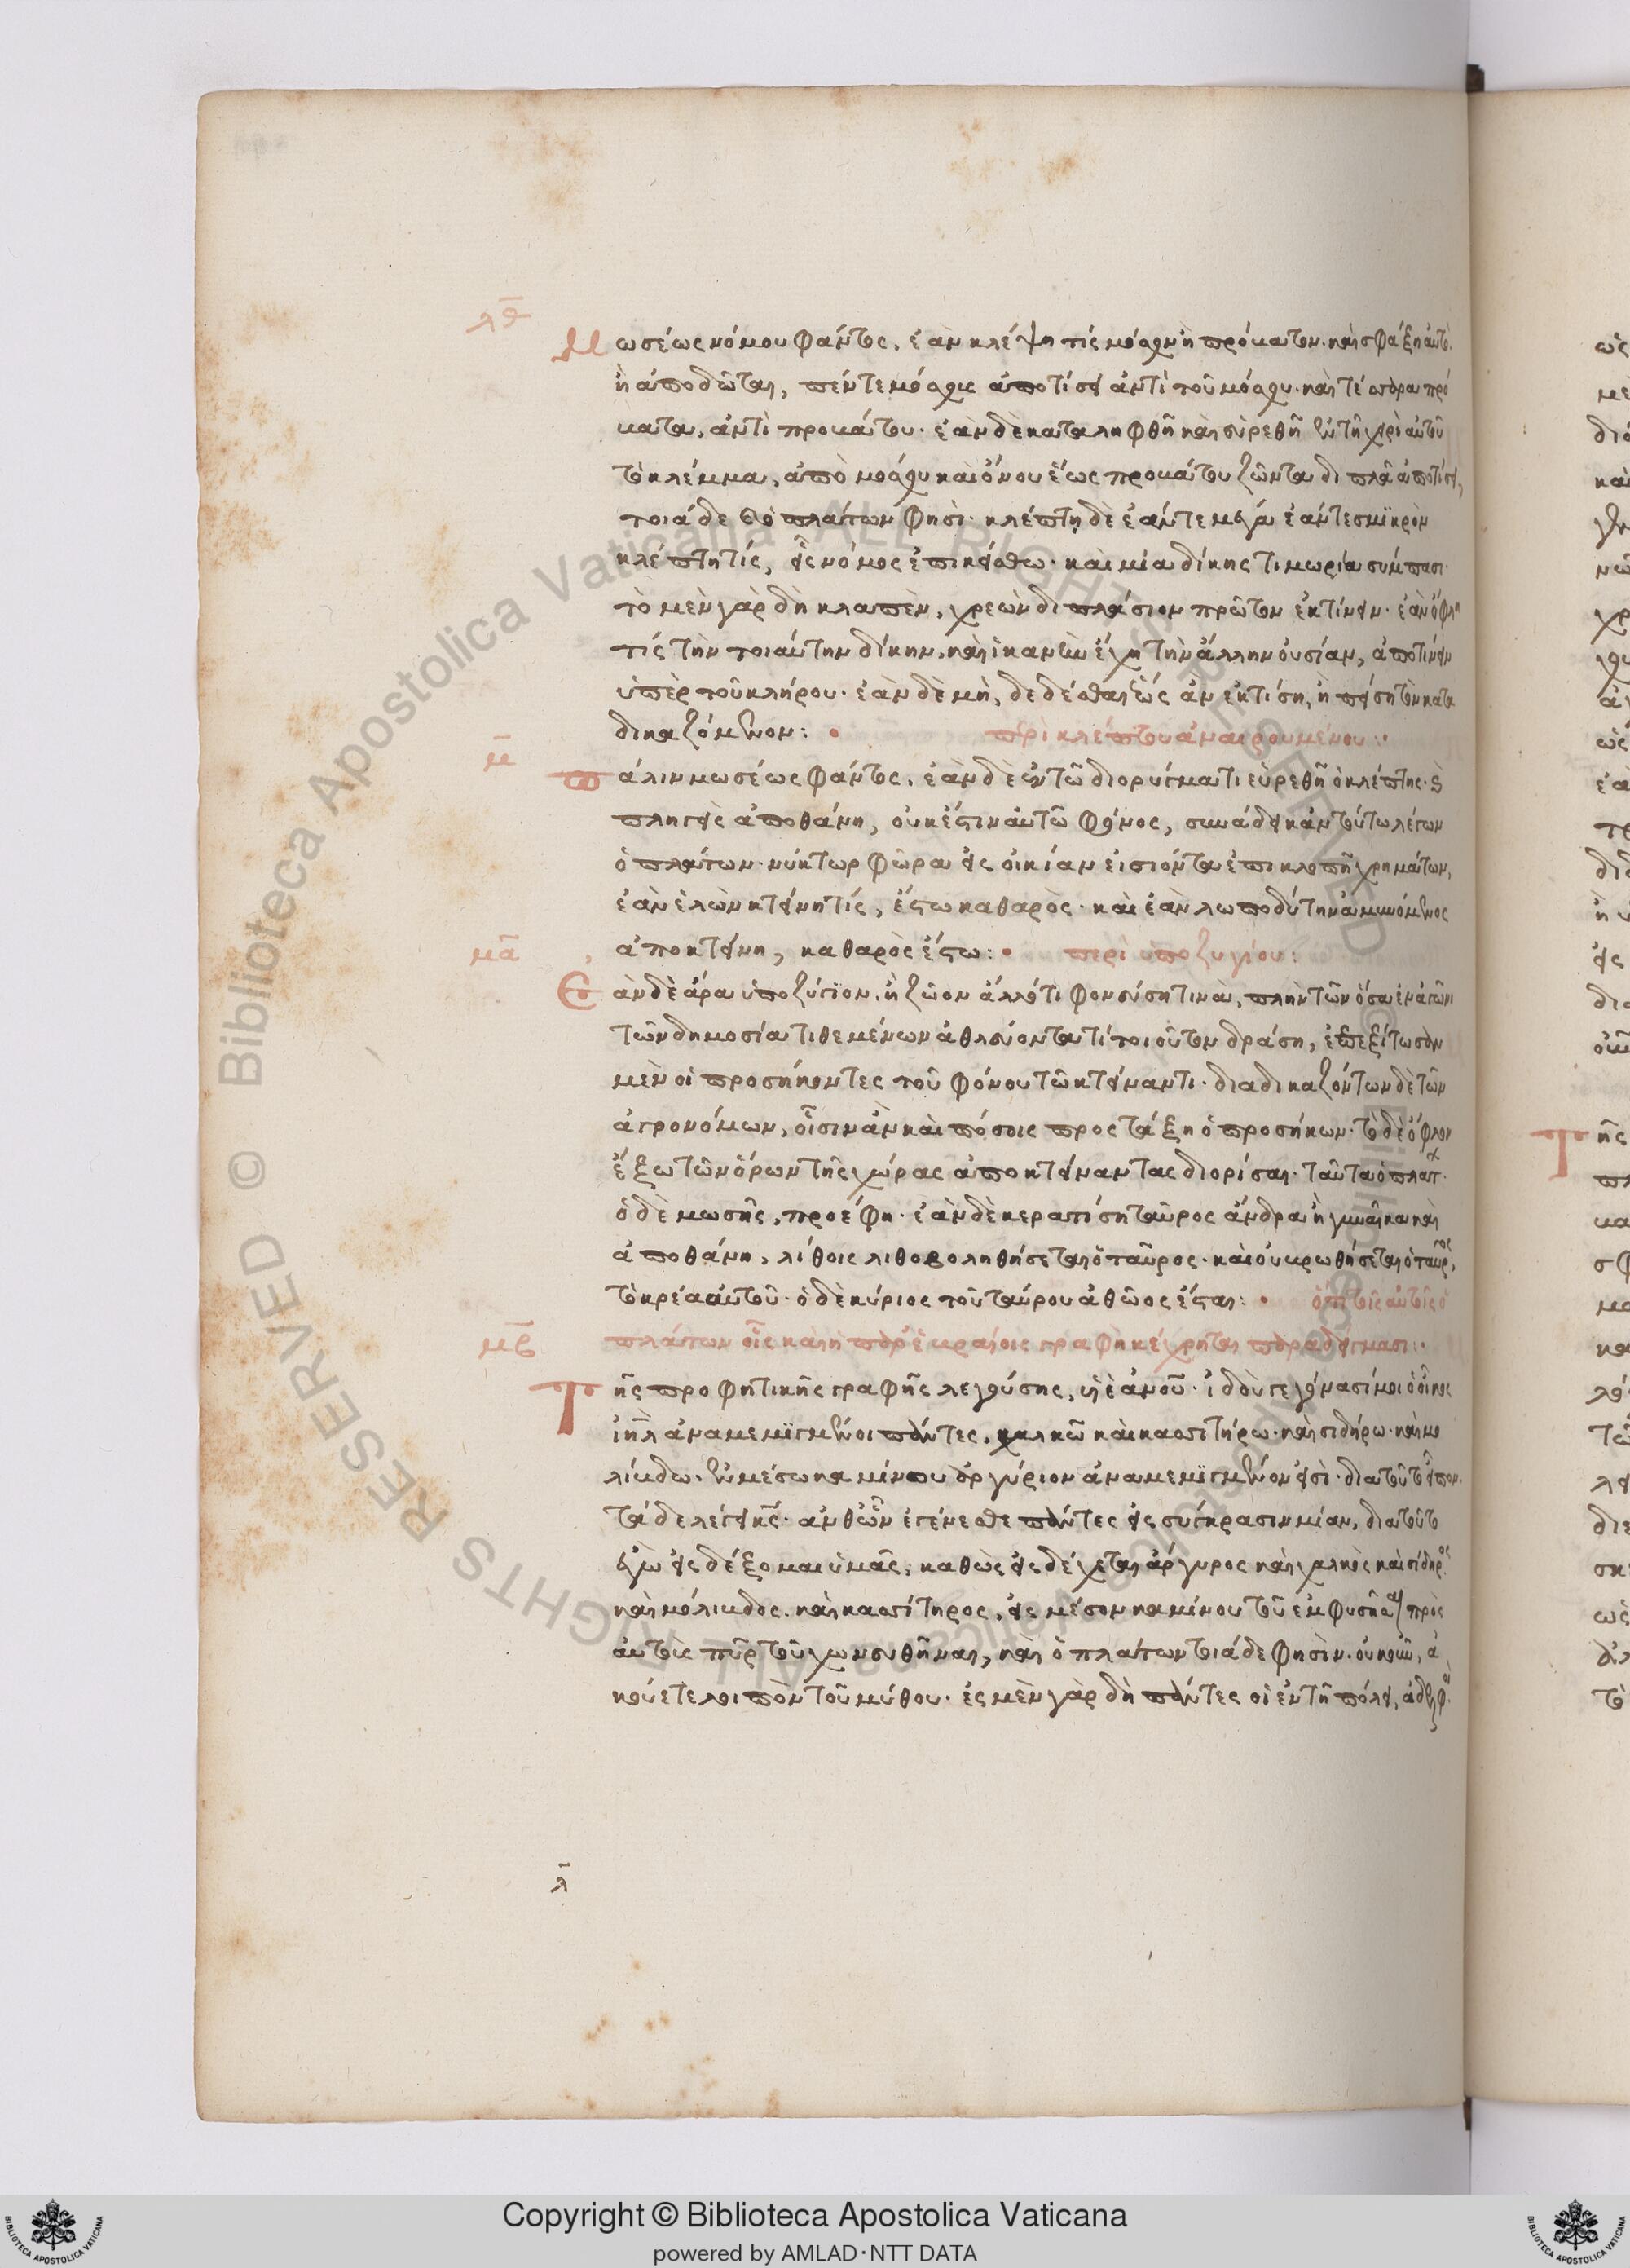 λθ
Μωσέως νόμου φάντος, ἐὰν κλέψη τίς μόσχον ἢ πρόβατον. καὶ σφάξη αὐτὸ.
ἢ ἀποδῶται, πέντε μόσχους ἀποτίσει ἀντὶ τοῦ μόσχου. καὶ τέσσαρα πρό
βατα, ἀντὶ προβάτου. ἐὰν δὲ καταληφθῆ καὶ εὑρεθῆ ἐν τῆ χειρὶ αὐτοῦ
τὸ κλέμμα, ἀπὸ μόσχου καὶ ὄνου ἕως προβάτου ζῶντα διπλᾶ ἀποτίσει,
τοιάδε ὁ πλάτων φησί. κλέπτη δὲ ἐάν τε μέγα ἐάν τε σμϊκρὸν
κλέπτη τίς, εἷς νόμος ἐπικείσθω. καὶ μία δίκης τιμωρία σύμπασι.
τὸ μὲν γὰρ δὴ κλαπὲν, χρεὼν διπλάσιον πρῶτον ἐκτίνειν. ἐὰν ὄφλη
τίς τὴν τοιαύτην δίκην, καὶ ἱκανὴν ἔχη τὴν ἄλλην οὐσίαν, ἀποτίνειν
ὑπὲρ τοῦ κλήρου. ἐὰν δὲ μὴ, δεδέσθαι ἕως ἂν ἐκτίση, ἢ πείση τὸν κατα
δικαζόμενον: περὶ κλέπτου ἀναιρουμένου:
μ
πάλιν μωσέως φάντος. ἐὰν δὲ ἐν τῶ διορύγματι εὑρεθῆ ὁ κλέπτης. καὶ
πληγεὶς ἀποθάνη, οὐκ ἔστιν αὐτῶ φόνος, συνάδει κἂν τούτω λέγων
ὁ πλάτων. νύκτωρ φῶρα εἰς οἰκίαν εἰσιόντα ἐπὶ κλοπῆ χρημάτων,
ἐὰν ἑλὼν κτείνη τίς, ἔστω καθαρὸς. καὶ ἐὰν λωποδύτην ἀμυνόμενος
ἀποκτείνη, καθαρὸς ἔστω: περὶ ὑποζυγίου:
μα
Ἐὰν δὲ ἄρα ὑποζύγϊον, ἢ ζῶον ἄλλό τι φονεύση τινὰ, πλὴν τῶν ὅσα ἐν ἀγῶνι
τῶν δημοσία τιθεμένων ἀθλεύοντα τί τοιοῦτον δράση, ἐπεξίτωσαν
μὲν οἱ προσήκοντες τοῦ φόνου τῶ κτείναντι. διαδικαζόντων δὲ τῶν
ἀγρονόμων, οἷσιν ἂν καὶ πόσοις προστάξη ὁ προσήκων. τὸ δὲ ὄφλον
ἔξω τῶν ὅρων τῆς χώρας ἀποκτείναντας διορίσαι. ταῦτα ὁ πλάτ.
ὁ δὲ μωσῆς, προέφη. ἐὰν δὲ κερατίση ταῦρος ἄνδρα ἢ γυναῖκα καὶ
ἀποθάνη, λίθοις λιθοβοληθήσεται ὁ ταῦρος. καὶ οὐ βρωθήσεται
τὸ κρέα αὐτοῦ. ὁ δὲ κύριος τοῦ ταύρου ἀθῶος ἔσται: ὅτι τοῖς αὐτοῖς ὁ
μβ
πλάτων οἷς καὶ ἡ παρ' ἑβραίοις γραφὴ κέχρηται παραδείγμασι:
Τῆς προφητικῆς γραφῆς λεγούσης, υἱὲ ἀνοῦ. ἰδοὺ γεγόνασί μοι ὁ οἶκος
ἰηλ ἀναμεμϊγμένοι πάντες, χαλκῶ καὶ κασσιτήρω. καὶ σιδήρω. καὶ μο
λίβδω. ἐν μέσω καμίνου ἀργύριον ἀναμεμϊγμένον εἰσὶ. διατοῦτο εἰπὸν.
τάδε λέγει κς. ἀνθ' ὧν ἐγένεσθε πάντες εἰς σύγκρασιν μίαν, διατοῦτο
ἐγὼ εἰσδέξομαι ὑμᾶς, καθὼς εἰσδέχεται ἄργυρος καὶ χαλκὸς καὶ σίδηρος
καὶ μόλιβδος. καὶ κασσίτηρος, εἰς μέσον καμίνου τοῦ ἐμφυσῆσαι πρὸς
αὐτοὺς πῦρ τοῦ χωνευθῆναι, καὶ ὁ πλάτων τοιάδε φησὶν. οὐκοῦν, ἀ
κούετε λοιπὸν τοῦ μύθου. ἐς μὲν γὰρ δὴ πάντες οἱ ἐν τῆ πόλει, ἀδελφοὶ
λ
Copyright © Biblioteca Apostolica Vaticana
powered by AMLAD・NTT DATA